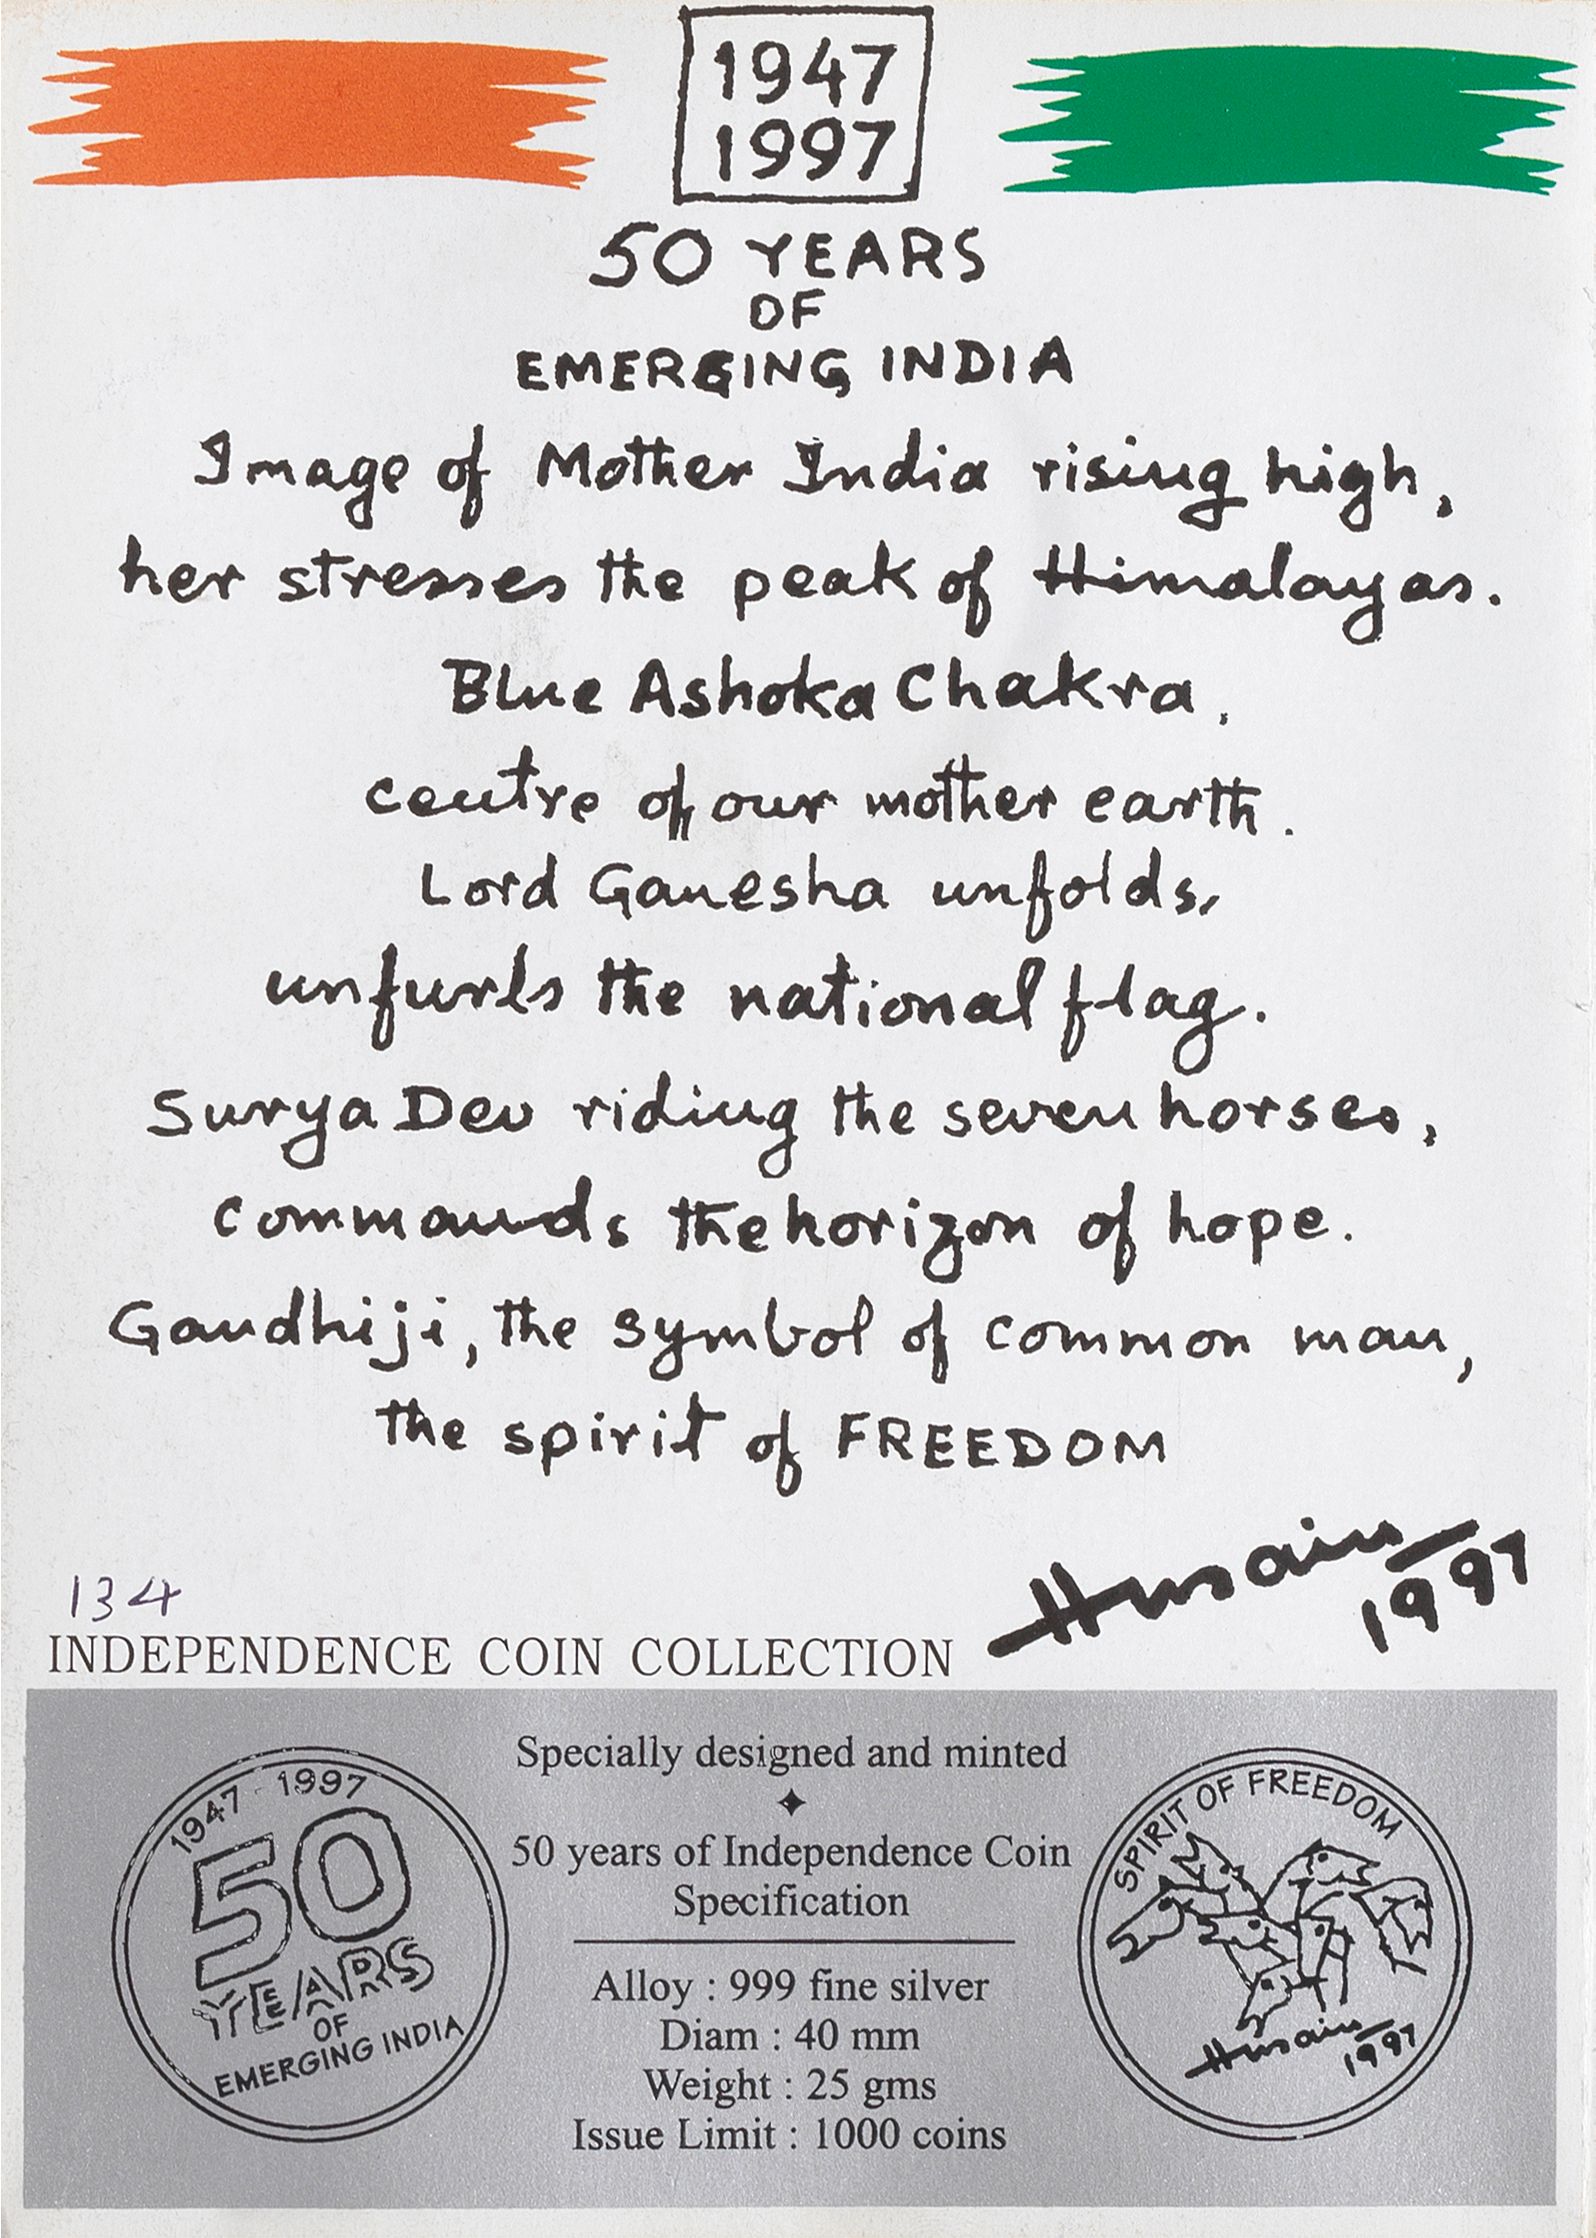 1947
1997
50 YEARS
OF
EMERGING INDIA
Image of Mother India rising high,
her stresses the peak of Himalayas.
Blue Ashoka Chakra,
centre of our mother earth.
Lord Ganesha unfolds,
unfurls the national flag.
Surya Dev riding the seven horses,
commands the horizon of hope.
Gandhiji, the symbol of common man,
the spirit of FREEDOM
Husain
1997
134
INDEPENDENCE COIN COLLECTION
1947 1997
50
YEARS
OF
EMERGING INDIA
Specially designed and minted
50 years of Independence Coin
Specification
Alloy : 999 fine silver
Diam : 40 mm
Weight : 25 gms
Issue Limit : 1000 coins
SPIRIT OF FREEDOM
Husain
1997